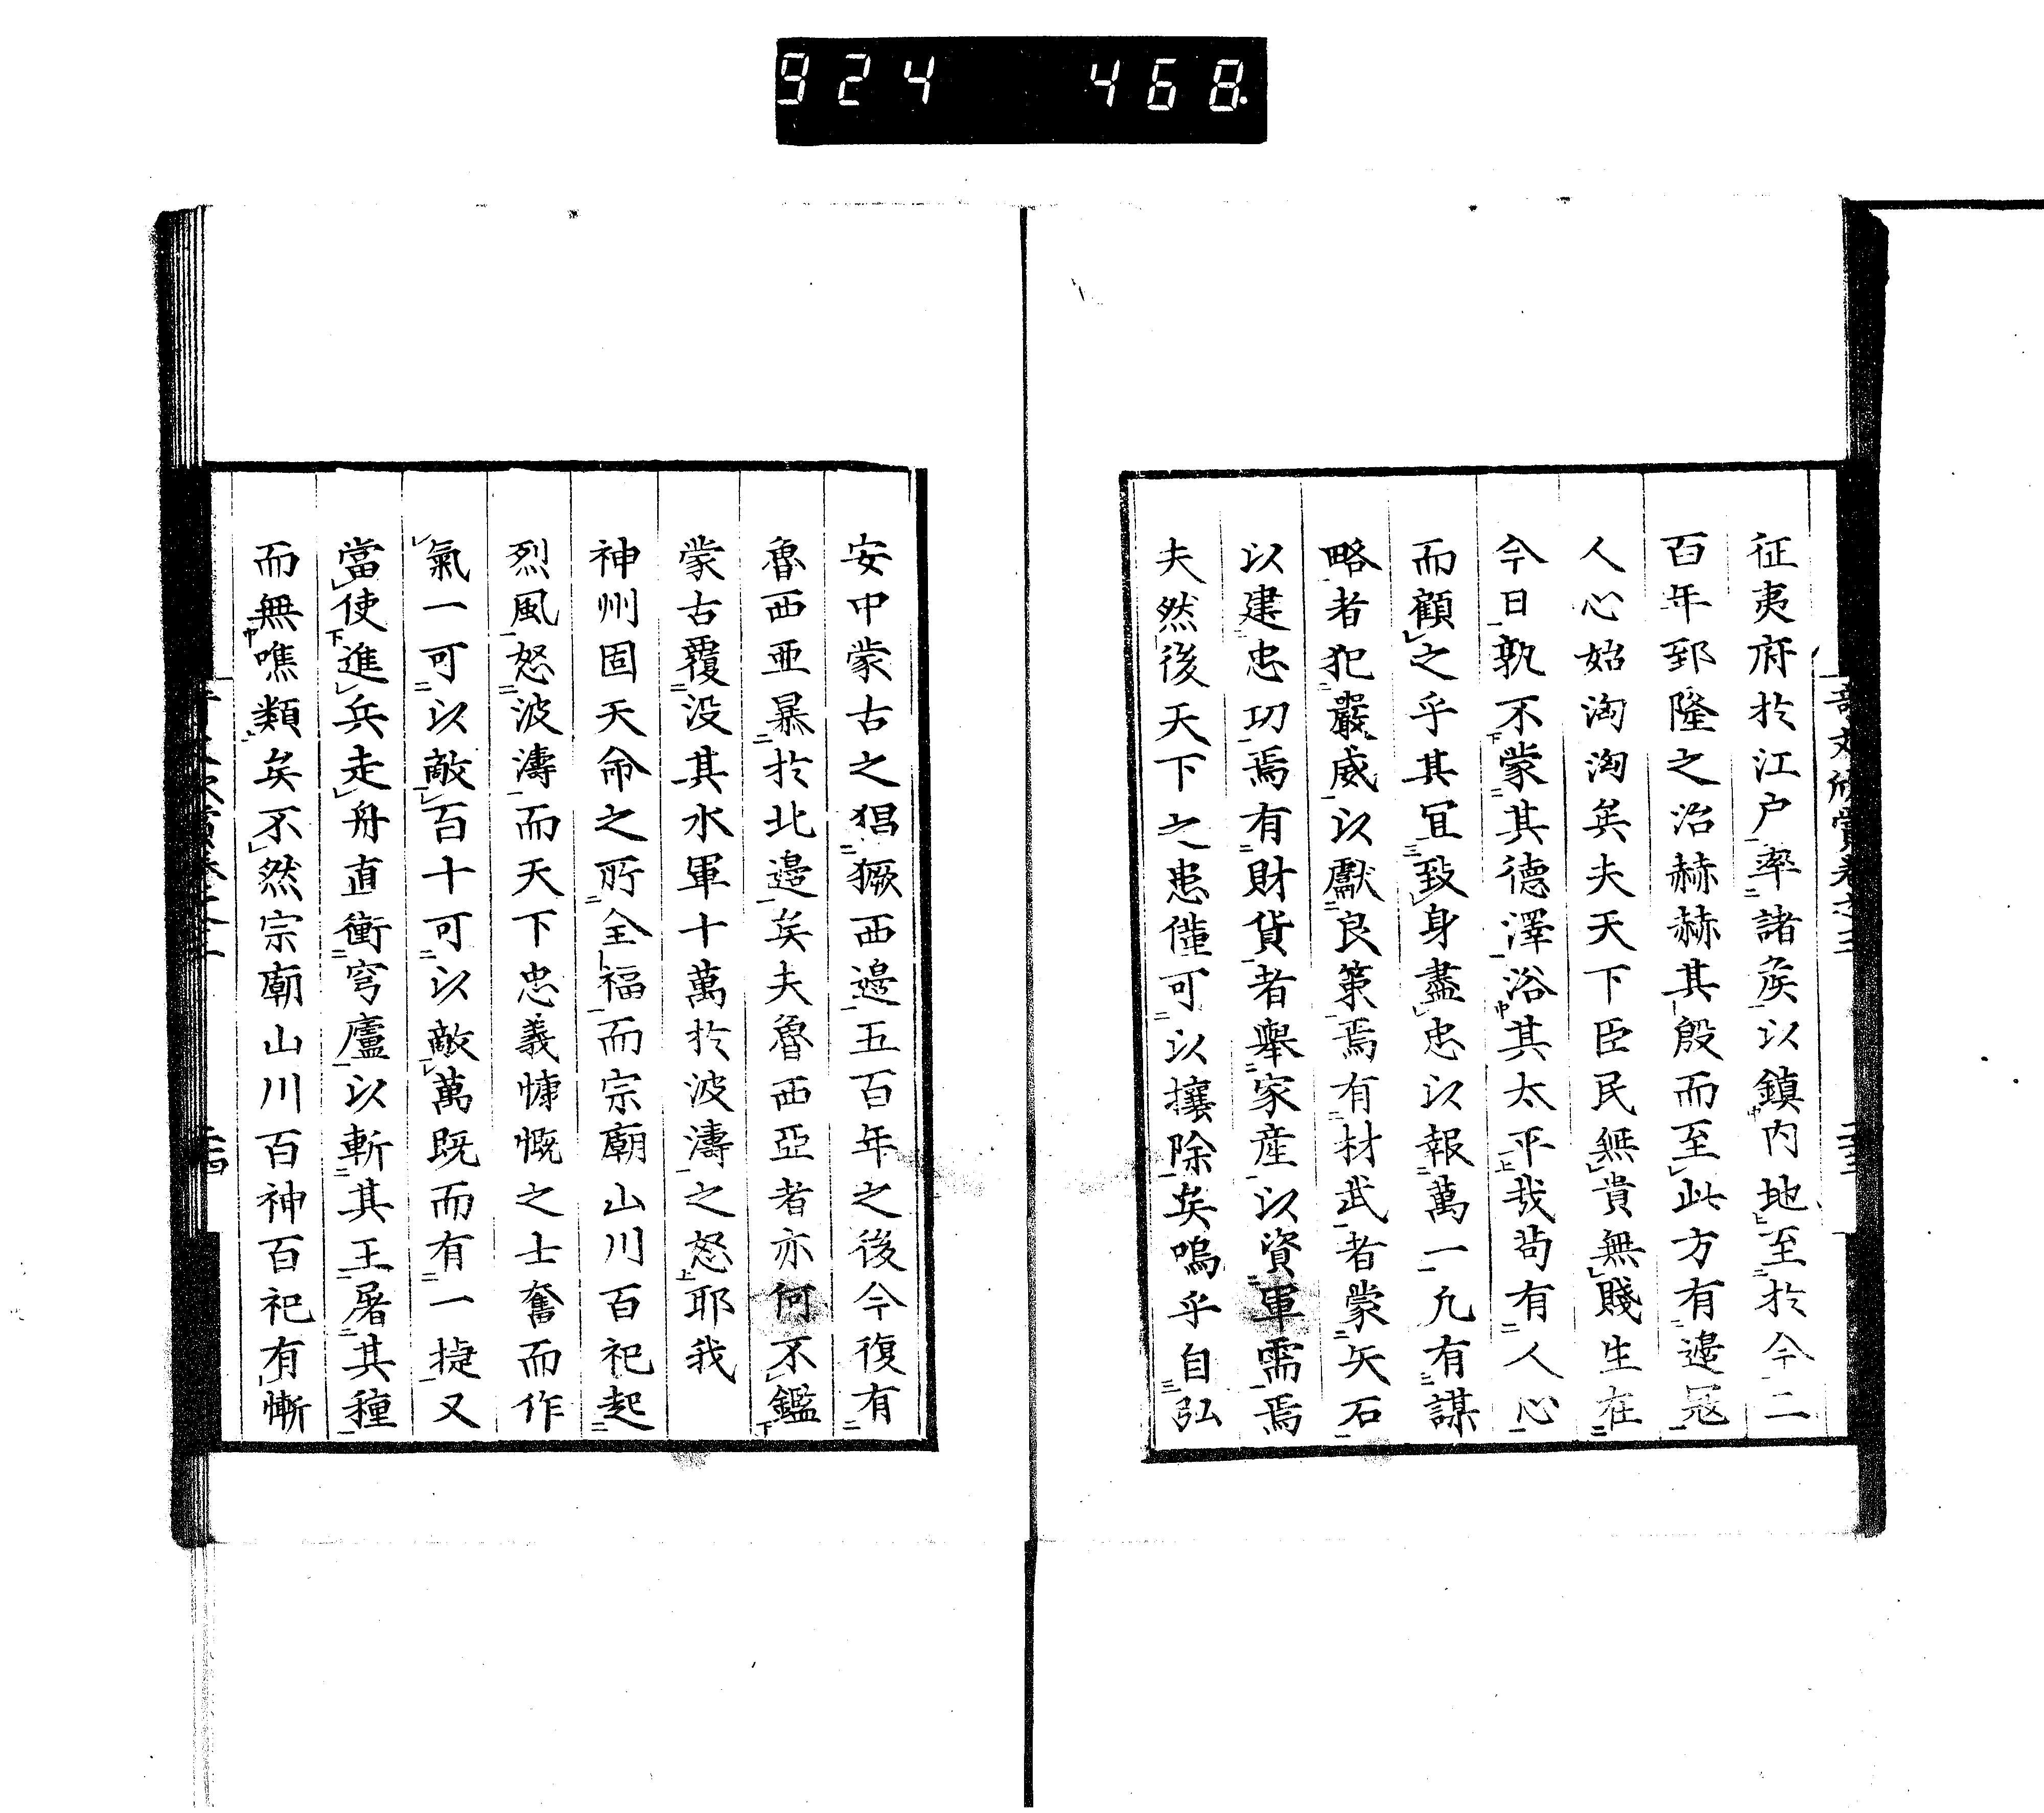 924 468
征夷府於江户率諸矦以鎮内地至於今二
百年郅隆之治赫赫其殷而至此方有邉冦
人心始洶洶矣夫天下臣民無貴無賤生在
今日孰不蒙其德澤浴其太平哉茍有人心
而顧之乎其冝致身盡忠以報萬一凢有謀
略者犯嚴威以獻良策焉有材武者蒙矢石
以建忠功焉有財貨者擧家産以資軍需焉
夫然後天下之患僅可以攘除矣嗚乎自弘
安中蒙古之猖獗西邉五百年之後今復有
魯西亜暴於北邉矣夫魯西亞者亦何不鑑
蒙古覆没其水軍十萬於波濤之怒耶我
神州固天命之所全福而宗廟山川百祀起
烈風怒波濤而天下忠義慷慨之士奮而作
氣一可以敵百十可以敵萬既而有一捷又
當使進兵走舟直衝穹廬以斬其王屠其種
而無噍類矣不然宗廟山川百神百祀有慚